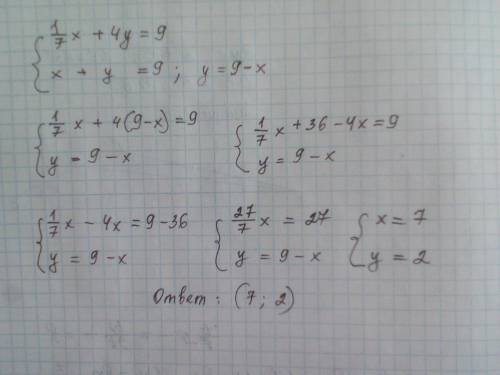 1/7 x + 4y = 9
x + y = 9 ; y = 9 - x
1/7 x + 4(9-x) = 9
y = 9 - x
1/7 x + 36 - 4x = 9
y = 9 - x
1/7 x - 4x = 9 - 36
y = 9 - x
27/7 x = 27
y = 9 - x
x = 7
y = 2
Ответ : (7 ; 2)